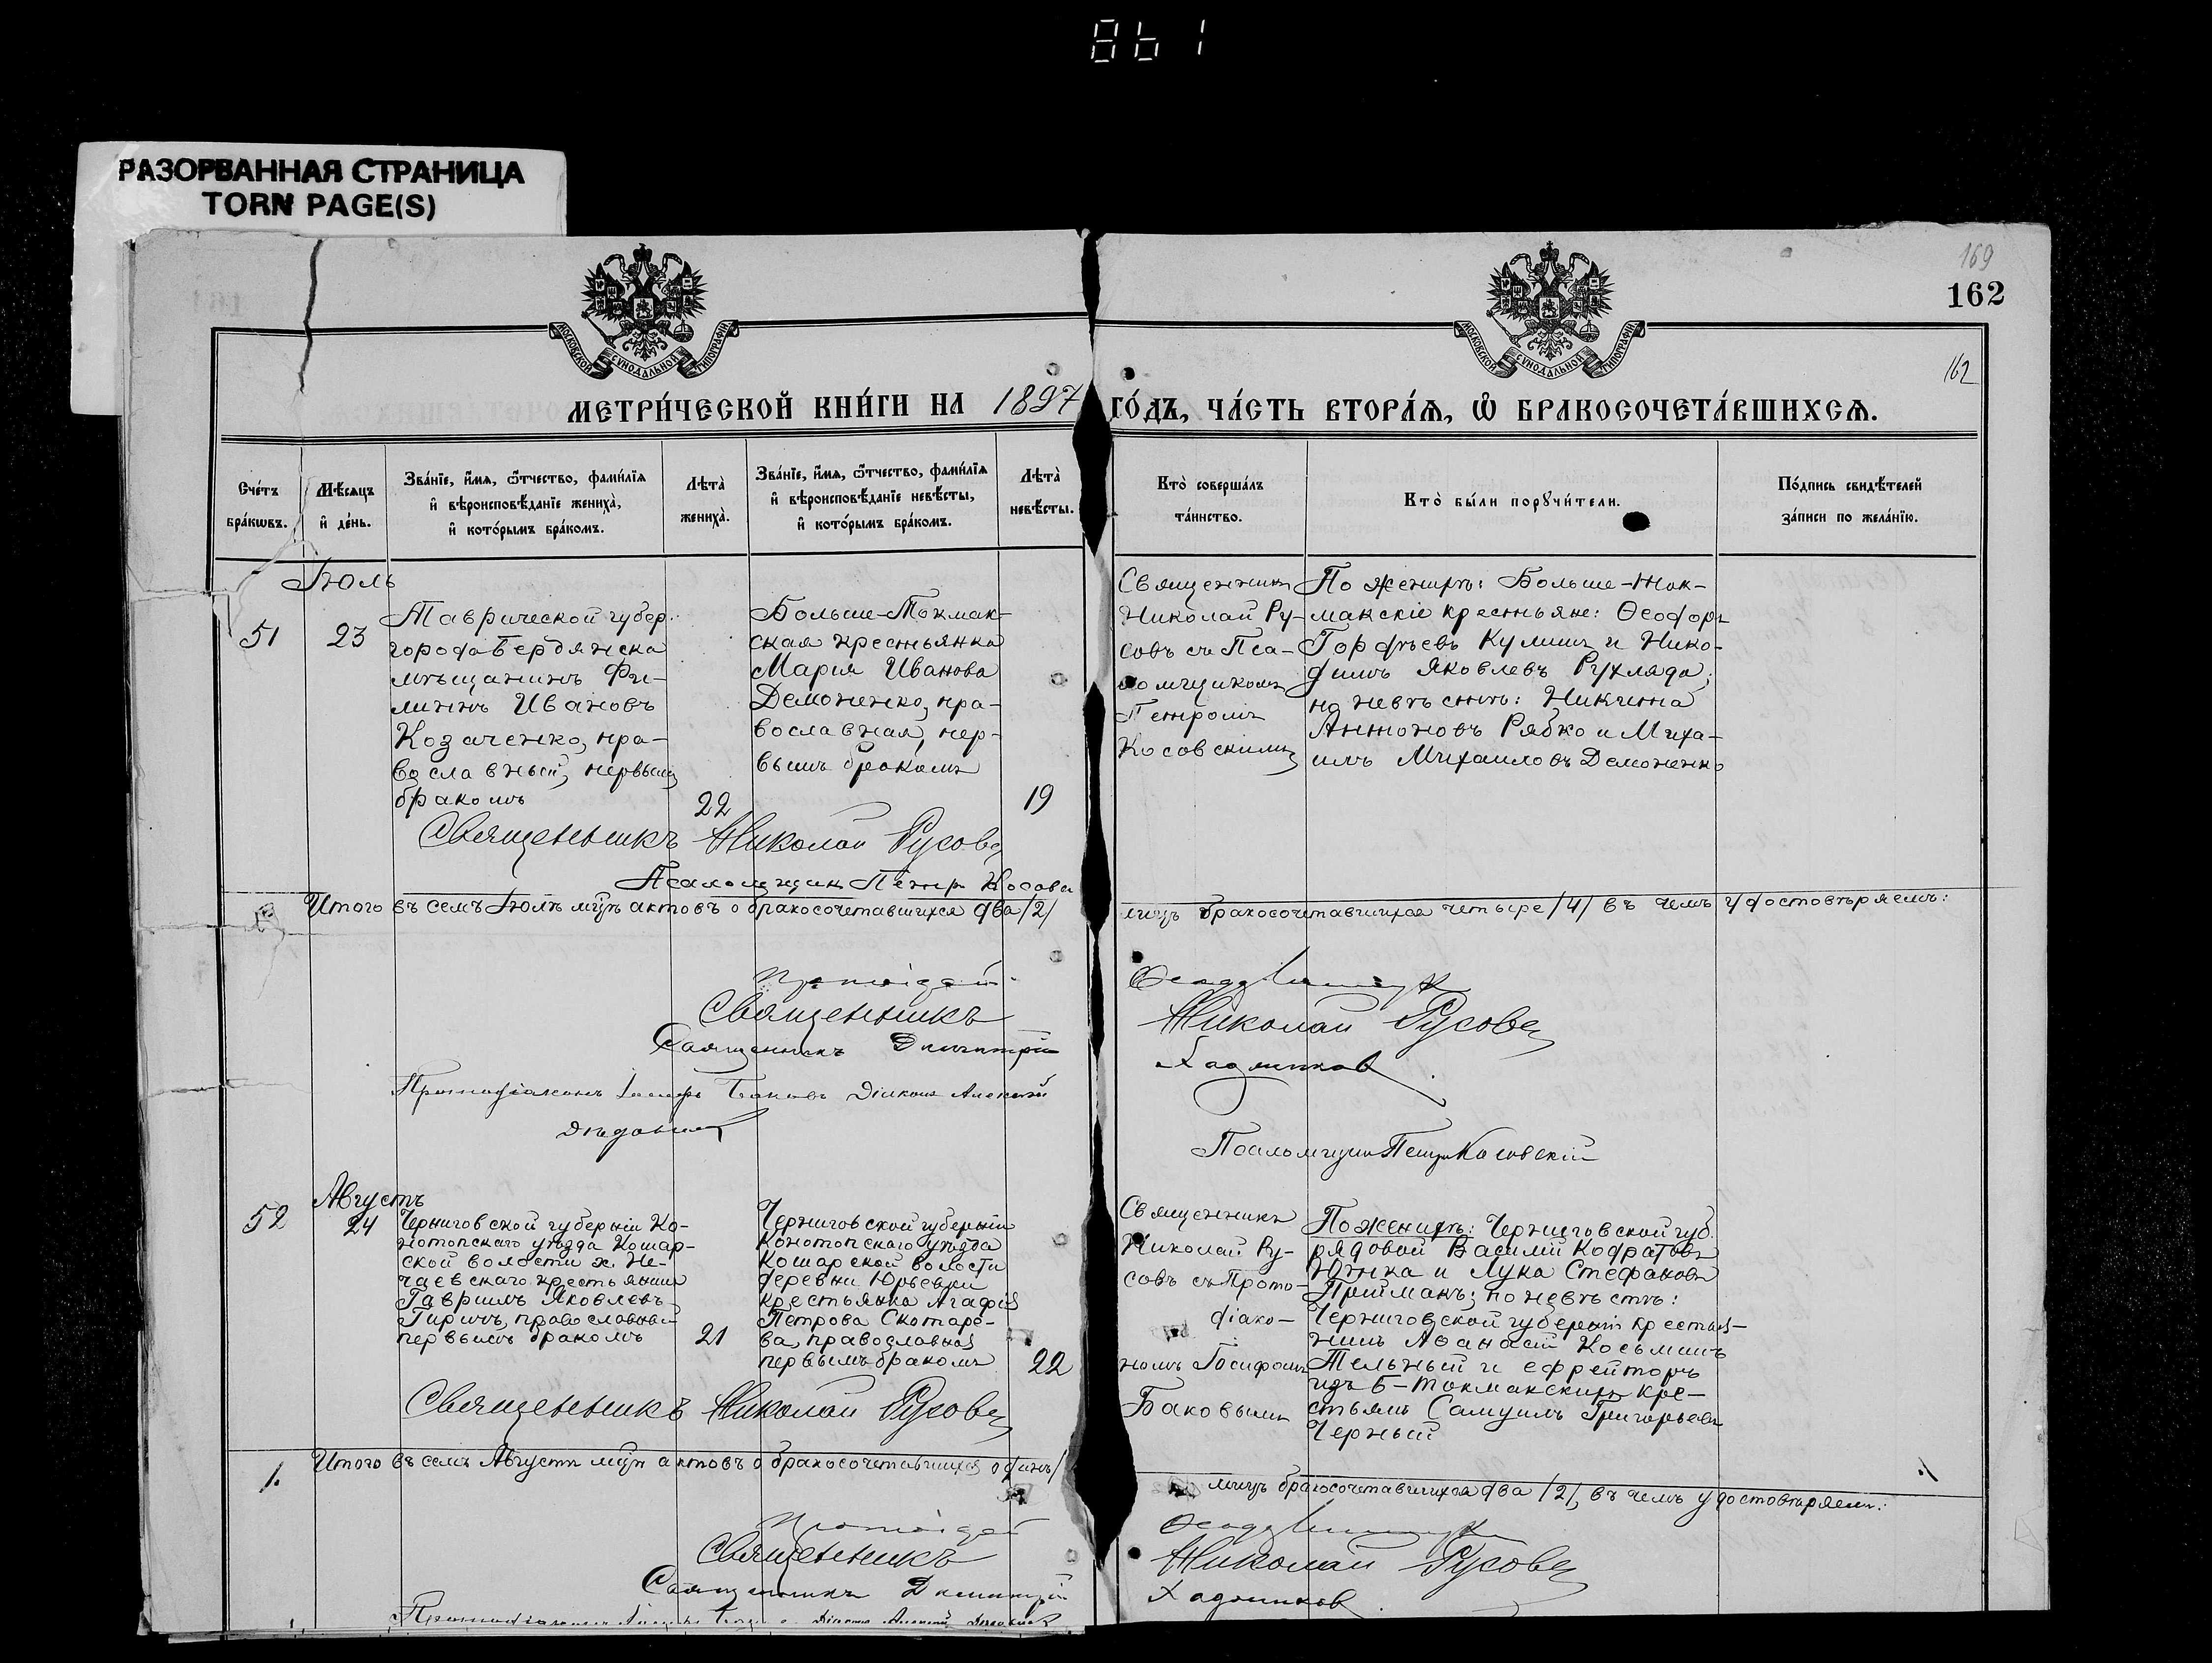 861
РАЗОРВАННАЯ СТРАНИЦА
TORN PAGE(S)
169
162
162
МОСКОВСКОЙ СѴНОДАЛЬНОЙ ТИПОГРАФІИ
МОСКОВСКОЙ СѴНОДАЛЬНОЙ ТИПОГРАФІИ
МЕТРИ́ЧЕСКОЙ КНИ́ГИ НА 1897 ГО́ДЪ, ЧА́СТЬ ВТОРА́Ѧ, Ѡ БРАКОСОЧЕТА́ВШИХСѦ.
Сче́тъ
бра́кѡвъ.
Мѣ́сѧцъ
и҆ де́нь.
Зва́нїе, и҆́мѧ, ѻ҆́тчество, фами́лїѧ
и҆ вѣроисповѣ́данїе жениха̀,
и҆ кото́рымъ бра́комъ.
Лѣта̀
жениха̀.
Зва́нїе, и҆́мѧ, ѻ҆́тчество, фами́лїѧ
и҆ вѣроисповѣ́данїе невѣ́сты,
и҆ кото́рымъ бра́комъ.
Лѣта̀
невѣ́сты.
Кто̀ соверша́лъ
та́инство.
Кто̀ бы́ли порꙋчи́тели.
По́дпись свидѣ́телей
за́писи по жела́нїю.
Іюль
51
23
Таврической губер.
города Бердянска
мѣщанинъ Фи-
липпъ Ивановъ
Козаченко, пра-
вославный, первымъ
бракомъ
22
Больше-Токмак-
ская крестьянка
Марія Иванова
Демоненко, пра-
вославная, пер-
вымъ бракомъ
19
Священникъ
Николай Ру-
совъ съ Пса-
ломщикомъ
Петромъ
Косовскимъ
По женихѣ: Больше-Ток-
макскіе крестьяне: Ѳеодоръ
Гордѣевъ Кулишъ и Нико-
димъ Яковлевъ Рухляда;
по невѣстѣ: Никита
Антоновъ Рябко и Миха-
илъ Михаиловъ Демоненко
Священникъ Николай Русовъ
Псаломщикъ Петръ Косовс
Итого въ семъ Іюлѣ мцѣ актовъ о бракосочетавшихся два /2/
лицъ бракосочетавшихся четыре /4/ въ чемъ удостовѣряемъ:
Священникъ Николай Русовъ
Священникъ Димитрій Хадживков
Протодіаконъ Іосифъ Баковъ Діаконъ Алексѣй
Псаломщикъ Петръ Косовскій
Августъ
52
24
Черниговской губерніи Ко-
нотопскаго уѣзда Кошар-
ской волости х. Не-
чаевскаго крестьянинъ
Гавріилъ Яковлевъ
Гиричъ, православный
первымъ бракомъ
21
Черниговской губерніи
Конотопскаго уѣзда
Кошарской волости
деревни Юрьевки
крестьянка Агафія
Петрова Скотаре-
ва, православная
первымъ бракомъ
22
Священникъ
Николай Ру-
совъ съ Прото-
діако-
номъ Іосифомъ
Баковымъ
По женихѣ: Черниговской губ.
рядовой Василій Кодратовъ
Ютка и Лука Стефановъ
Прийманъ; по невѣстѣ:
Черниговской губерніи крестья-
нинъ Аѳанасій Косьминъ
Тельный и ефрейторъ
изъ Б-Токмакскихъ кре-
стьянъ Самуилъ Григорьевъ
Черный
Священникъ Николай Русовъ
1.
Итого въ семъ Августѣ мцѣ актовъ о бракосочетавшихся одинъ /
лицъ бракосочетавшихся два /2/, въ чемъ удостовѣряемъ:
Священникъ Николай Русовъ
Священникъ Димитрій Хадживков